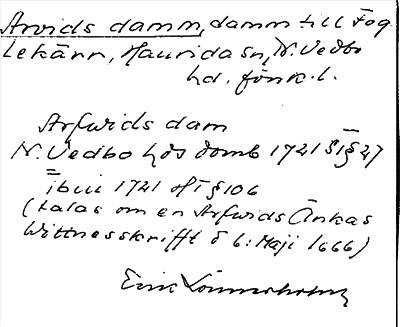 Arvids damm, damm till Fog
lekärr, Haurida sn, N. Vedbo
hd. Jönk. l.
Arfwids dam
N. Vedbo hds domb 1721 § 27
ibm 1721 § 106
(talas om en Arfwids Änkas
Wittnesskrifft d 6: Maji 1666)
Erik